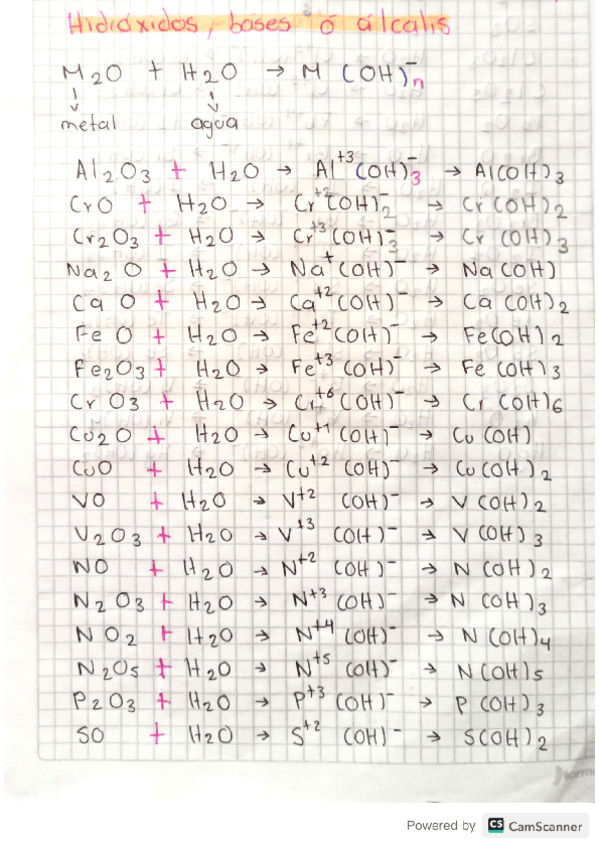 Hidróxidos, bases ó álcalis
M2O + H2O → M (OH)⁻n
metal agua
Al2O3 + H2O → Al⁺³(OH)⁻3 → Al(OH)3
CrO + H2O → Cr⁺²(OH)⁻2 → Cr(OH)2
Cr2O3 + H2O → Cr⁺³(OH)⁻3 → Cr(OH)3
Na2O + H2O → Na⁺(OH)⁻ → Na(OH)
CaO + H2O → Ca⁺²(OH)⁻ → Ca(OH)2
FeO + H2O → Fe⁺²(OH)⁻ → Fe(OH)2
Fe2O3 + H2O → Fe⁺³(OH)⁻ → Fe(OH)3
CrO3 + H2O → Cr⁺⁶(OH)⁻ → Cr(OH)6
Cu2O + H2O → Cu⁺¹(OH)⁻ → Cu(OH)
CuO + H2O → Cu⁺²(OH)⁻ → Cu(OH)2
VO + H2O → V⁺²(OH)⁻ → V(OH)2
V2O3 + H2O → V⁺³(OH)⁻ → V(OH)3
NO + H2O → N⁺²(OH)⁻ → N(OH)2
N2O3 + H2O → N⁺³(OH)⁻ → N(OH)3
NO2 + H2O → N⁺⁴(OH)⁻ → N(OH)4
N2O5 + H2O → N⁺⁵(OH)⁻ → N(OH)5
P2O3 + H2O → P⁺³(OH)⁻ → P(OH)3
SO + H2O → S⁺²(OH)⁻ → S(OH)2
Norma
Powered by CS CamScanner